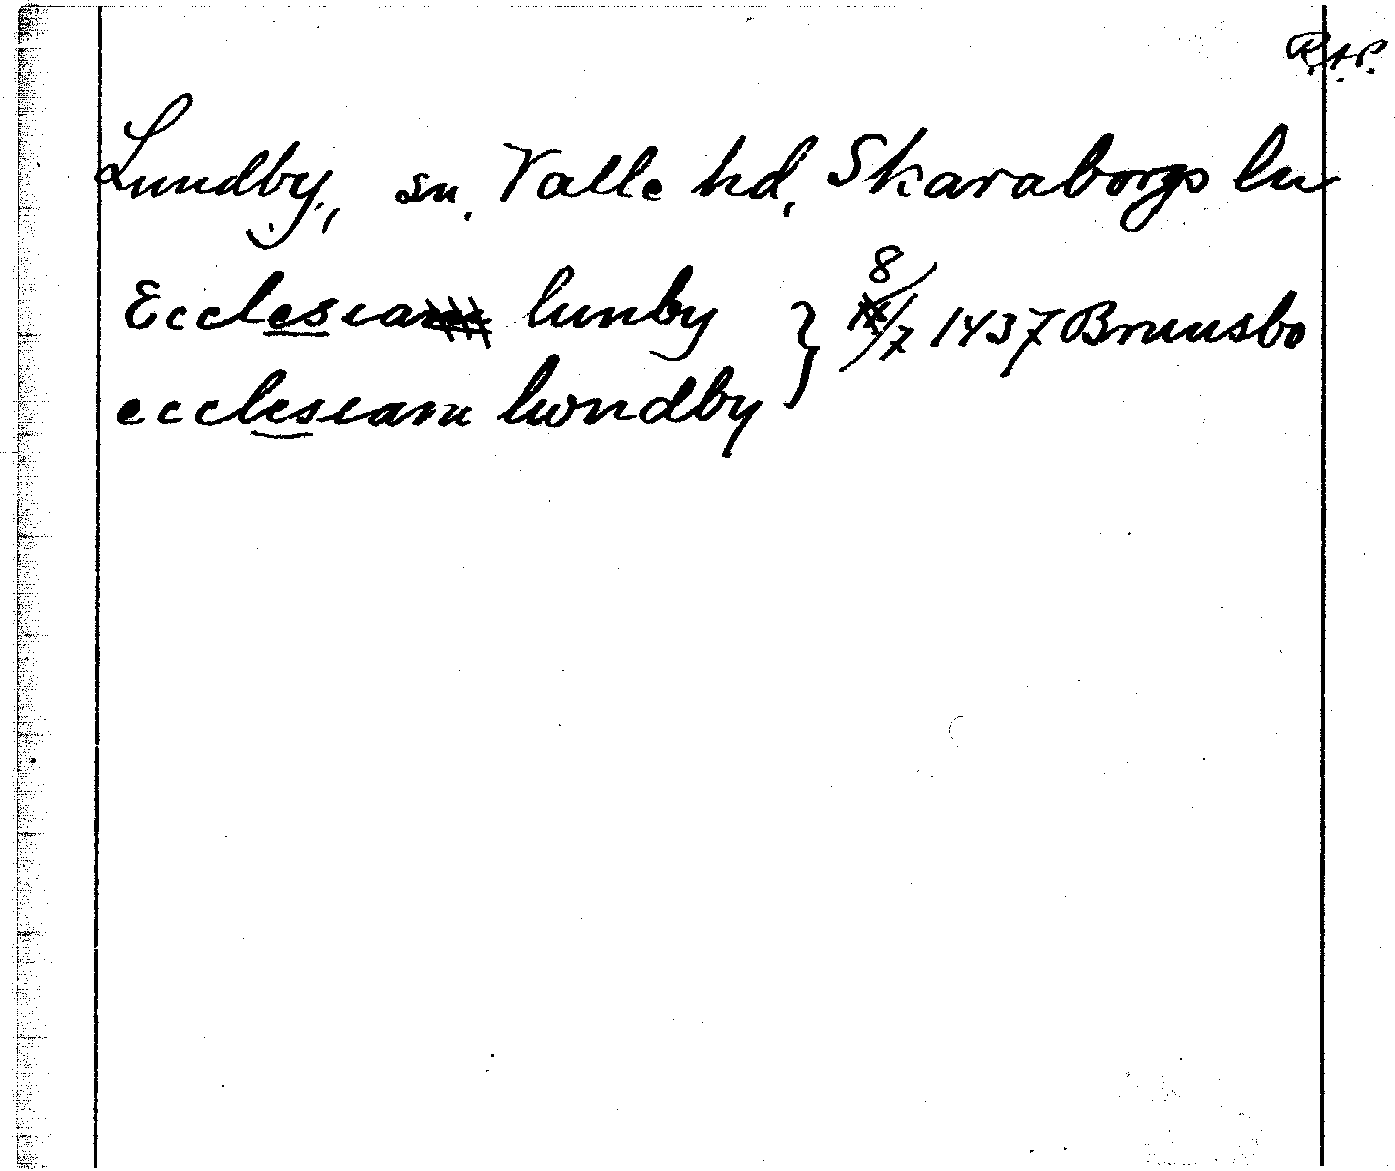 R.A.P.
Lundby, sn. Valle hd, Skaraborgs ln
Ecclesia lunby } 8/7 1437 Brunsbo
ecclesiam lwndby